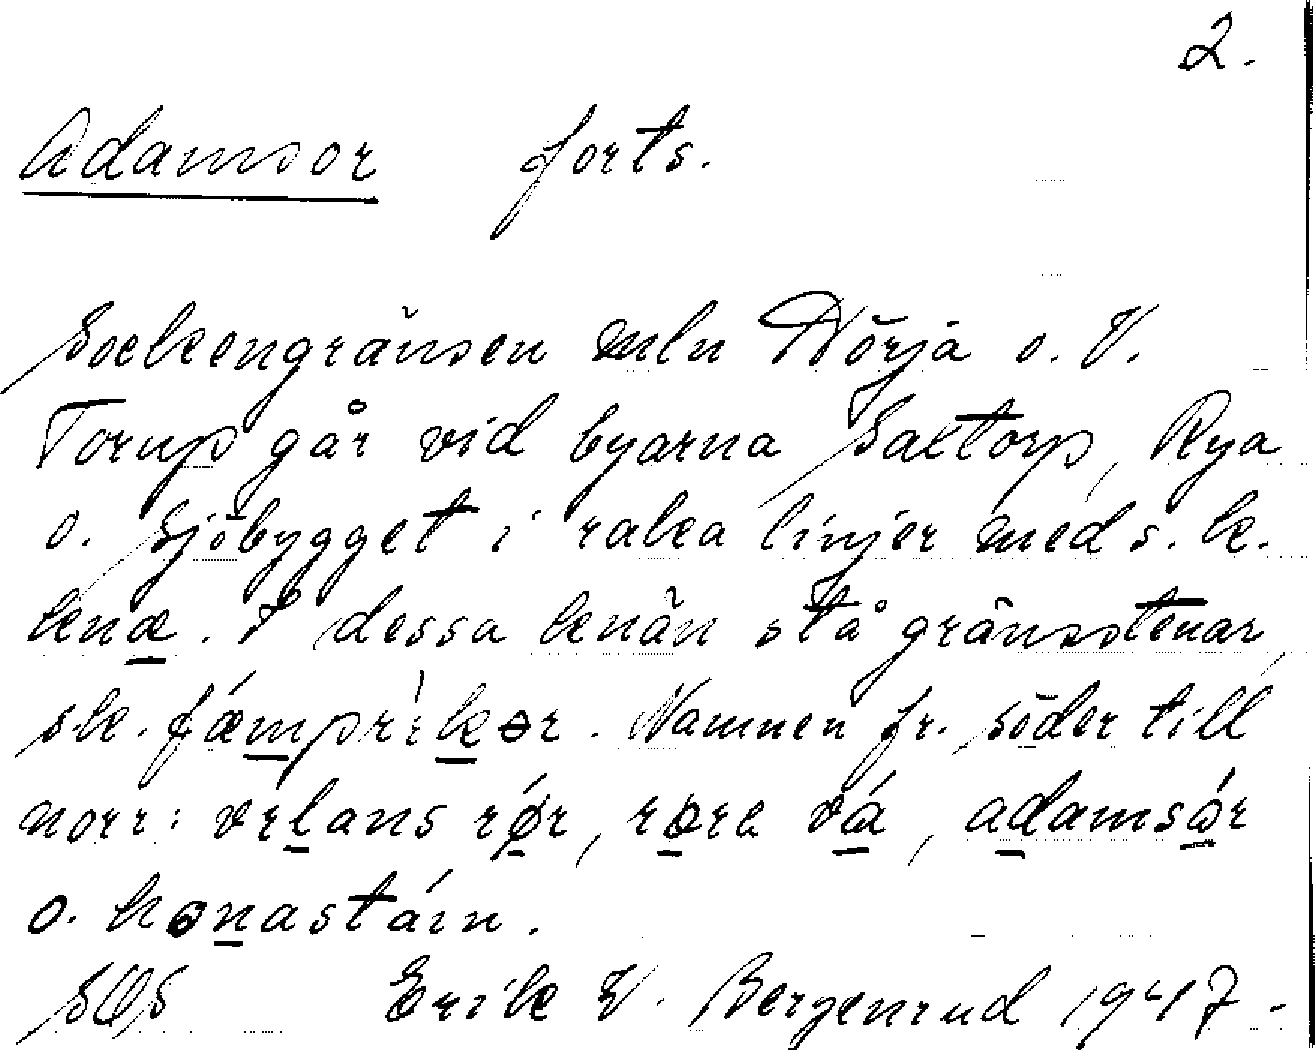 2.
Adamsor forts.
Sockengränsen mln Nörja o. V.
Torup går vid byarna Saltorp, Rya
o. Sjöbygget i raka linjer med s. k.
kenæ. I dessa kenän stå gränsstenar,
sk. fǽmprìkər. Namnen fr. söder till
norr: vrlans rǿr, røra vá, adamsár
o. kɵnastáin.
SOS Erik V. Bergenrud 1947.